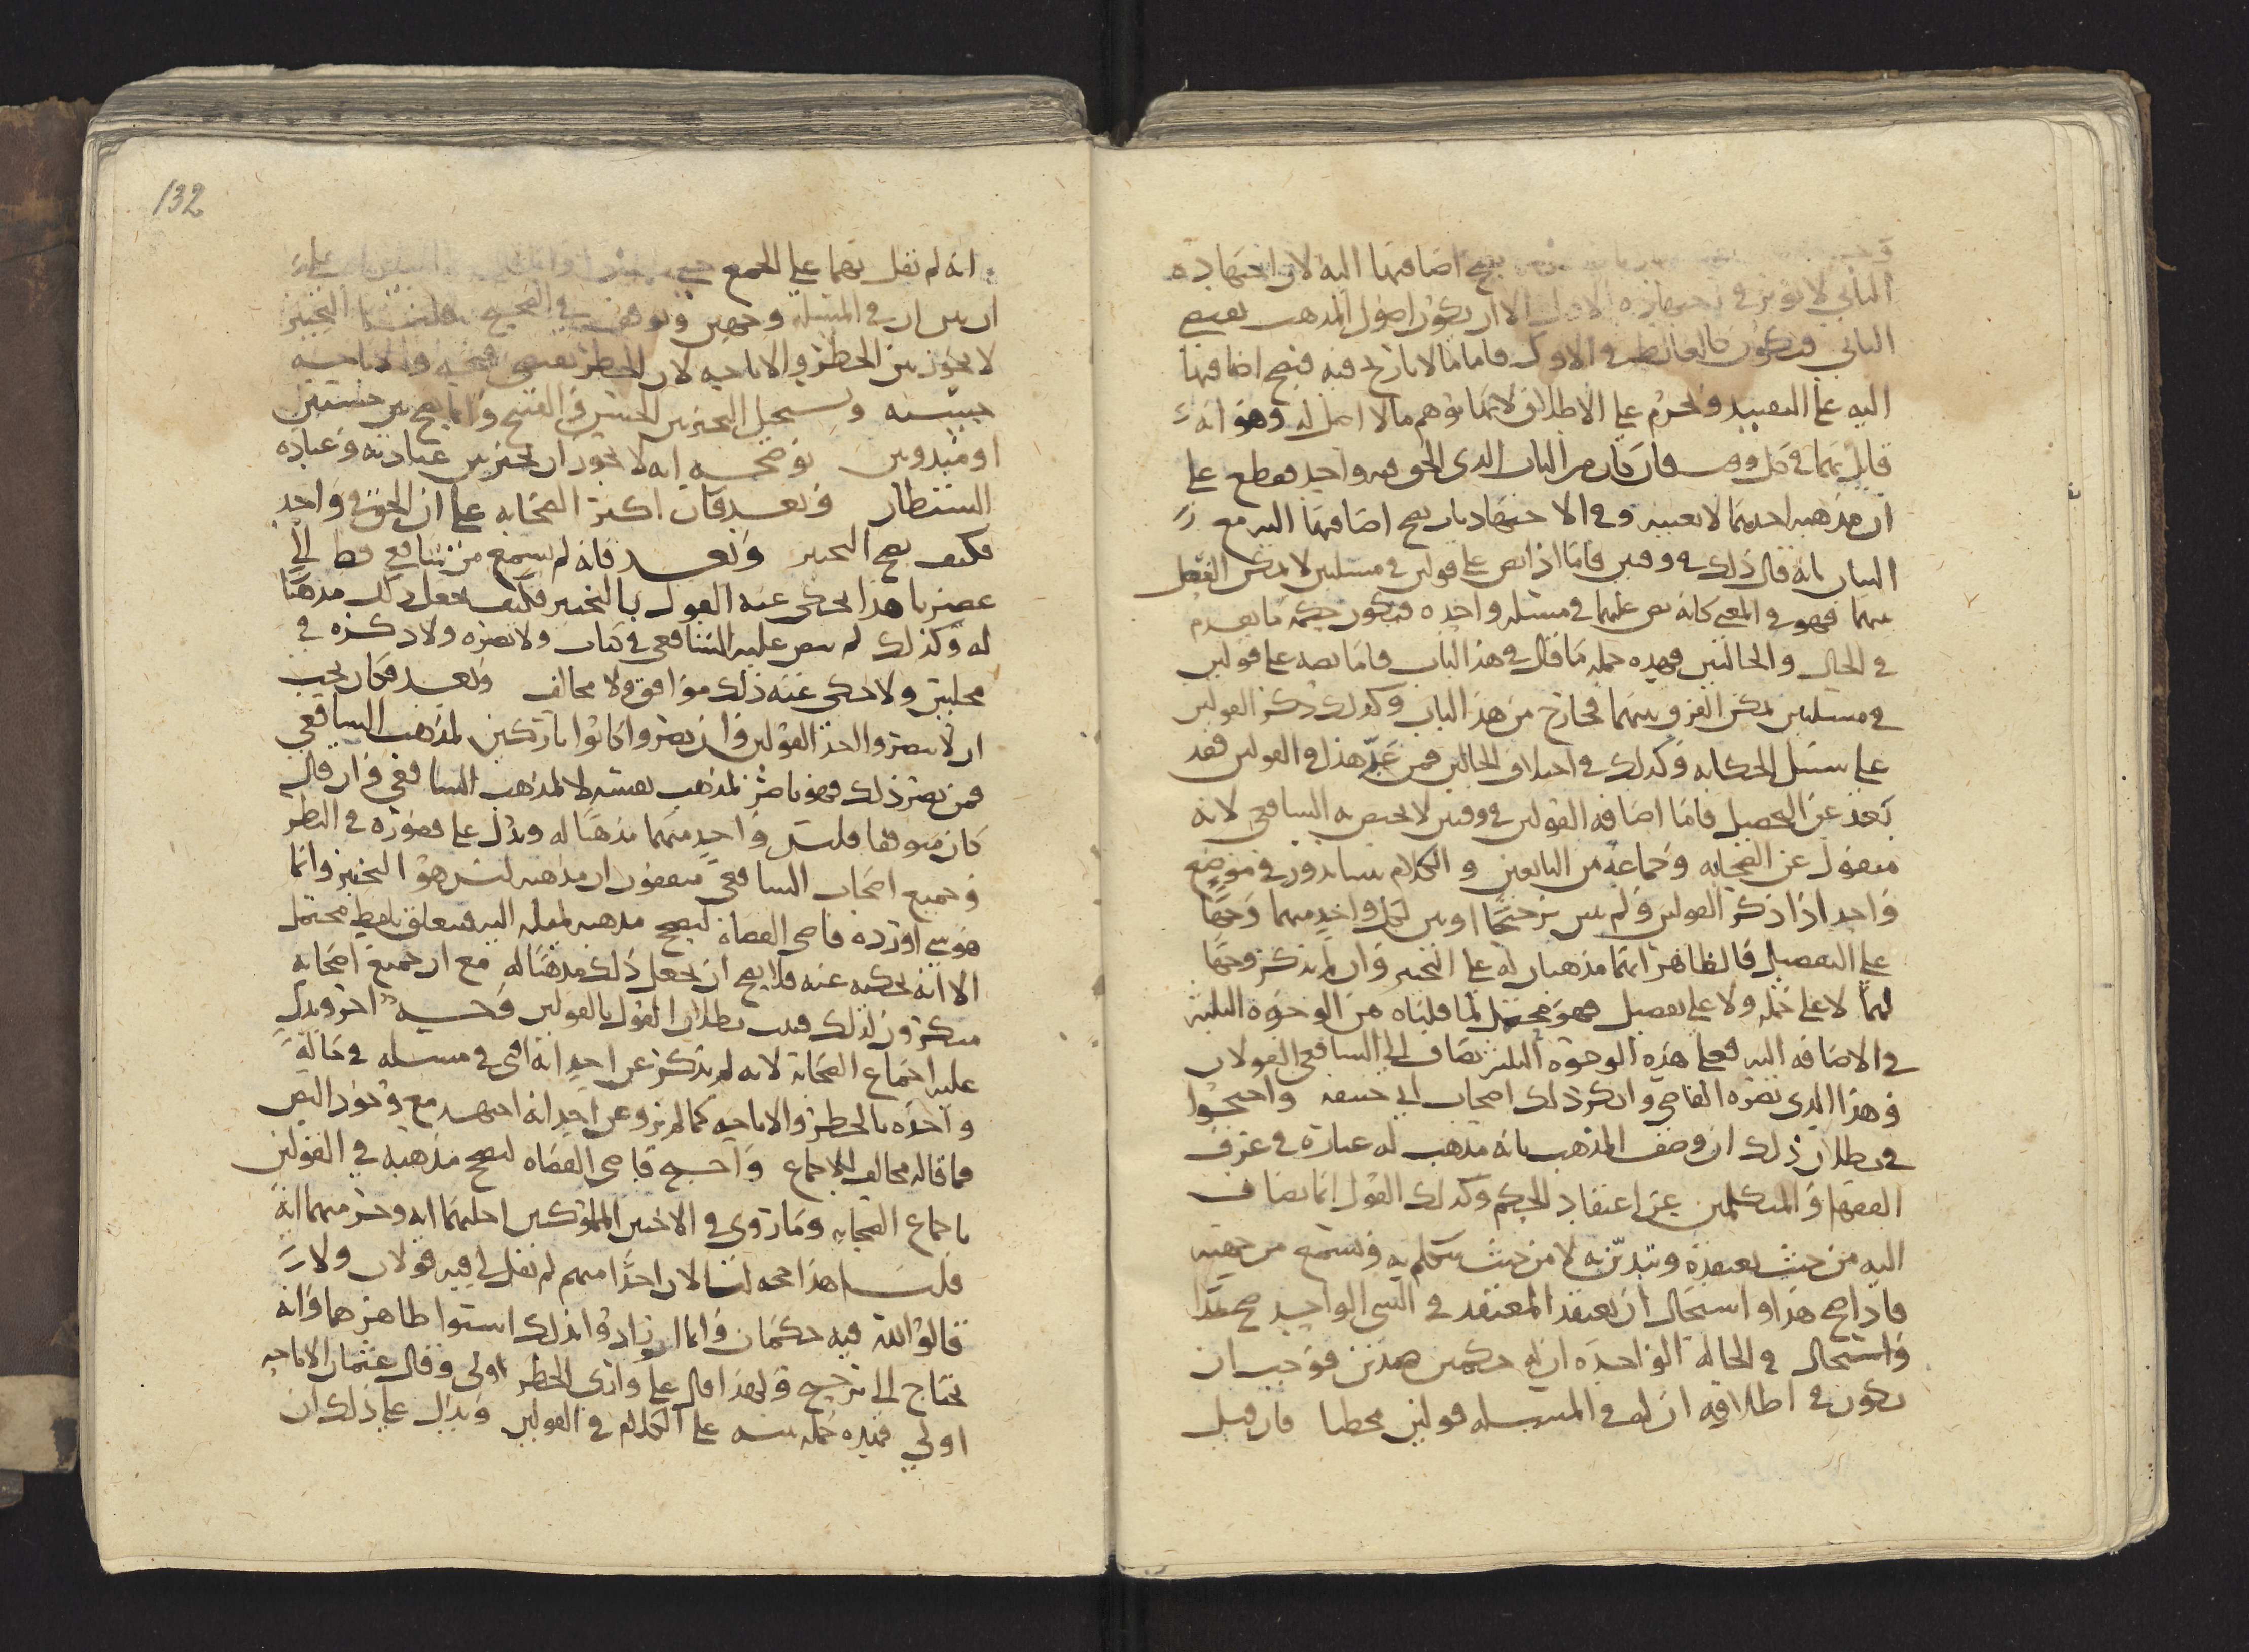 يصح اضافتها اليه لان اجتهاده
الثاني لا يوثر في اجتهاده الاول الا ان يكون اصول المذهب يقتضي
الثاني فيكون كالغالط في الاول فاما ما لا تاريخ فيه فيصح اضافتها
اليه على التقييد ويحرم على الاطلاق لانها توهم ما لا اصل له وهو انه
قايل بهما في كل وقت فان كان من الباب الذي الحق فيه واحد فقطع على
ان مذهبه احدهما لا بعينه وفي الاجتهاد بان يصح اضافتها اليه مع
البيان بانه قال ذلك في وقتين فاما اذا نص على قولين في مسلتين لا يمكن الفصل
بينهما فهو في المعنى كانه نص عليهما في مسئلة واحده فيكون حكمه ما تقدم
في الحال والحالتين فهذه جمله ما قال في هذا الباب فاما نصه على قولين
في مسلتين يمكن الفرق بينهما فخارج من هذا الباب وكذلك ذكر القولين
على سبيل الحكايه وكذلك في اختلاف الحالين فمن عد هذا في القولين فقد
بعد عن التحصيل فاما اضافه القولين في وقتين لا يختص به الشافعي لانه
منقول عن الصحابه وجماعة من التابعين والكلام بيننا يدور في موضع
واحد اذا ذكر القولين ولم يبين ترجيحا او بين لكل واحد منهما وجها
على التفصيل فالظاهر انهما مذهبان له على التخيير وان لم يذكر وجها
لهما لا على جمله ولا على تفصيل فهو محتمل لما قلناه من الوجوه الثلثه
في الاضافه اليه فعلى هذه الوجوه الثلث يضاف الى الشافعي القولان
وهذا الذي نصره القاضي وانكر ذلك اصحاب ابي حنيفه واحتجوا
في بطلان ذلك ان وصف المذهب بانه مذهب له عبارة في عرف
الفقها والمتكلمين عن اعتقاد الحكم وكذلك القول انما يضاف
اليه من حيث يعتقده ويتدين به لا من حيث يتكلم به ويسمع من جهته
فاذا صح هذا واستحال ان يعتقد المعتقد في الشي الواحد
واستحال في الحالة الواحده ان له حكمين ضدين فوجب ان
يكون في اطلاقه ان له في المسله قولين مخطيا فان قيل
132
انه لم يقل بهما على الجمع
ان بين ان في المسله وجهين وتوقف في الصحيح قلنا التخيير
لا يجوز بين الحظر والاباحه لان الحظر يقتضي قبحه والاباحه
حسنه ويستحيل التخيير بين الحسن والقبيح وانما يصح بين حسنين
او ضدين يوضحه انه لا يجوز ان يخير بين عبادته وعباده
الشيطان وبعد فان اكثر الصحابه على ان الحق في واحد
فكيف يصح التخيير وبعد فانه لم يسمع من شافعي قط الى
عصرنا هذا يحكي عنه القول بالتخيير فكيف يجعل ذلك مذهبا
له وكذلك لم ينص عليه الشافعي في كتاب ولا نصره ولا ذكره في
مجلس ولا حكى عنه ذلك موافق ولا مخالف وبعد فكان يجب
ان لا ينصروا احد القولين وان نصروا كانوا تاركين لمذهب الشافعي
فمن نصر ذلك فهو ناصر لمذهب نفسه لا لمذهب الشافعي وان قال
كان متوقفا فليس واحد منهما مذهبا له ويدل على قصوره في النظر
وجميع اصحاب الشافعي متفقون ان مذهبه ليس هو التخيير وانما
هو شي اورده قاضي القضاة ليصحح مذهبه لميله اليه فتعلق بلفظ محتمل
الا انه يحكيه عنه فلا يصح ان يجعل ذلك مذهبا له مع ان جميع اصحابه
منكرون لذلك فثبت بطلان القول بالقولين وجه اخر ويدل
عليه اجماع الصحابة لانه لم يذكر عن احد انه افتى في مسله في حالة
واحده بالحظر والاباحه كما لم يرو عن احد انه اجتهد مع وجود النص
فما قاله مخالف للاجماع واحتج قاضي القضاه ليصحح مذهبه في القولين
باجماع الصحابه وما روي في الاختين المملوكتين احلتهما ايه وحرمتهما اية
قلنا هذا حجه لنا لان احدا منهم لم يقل لي فيه قولان ولا
قالوا لله فيه حكمان وانما ارادوا بذلك استوا ظاهرهما وانه
يحتاج الى ترجيح ولهذا قال علي وارى الحظر اولى وقال عثمان الاباحه
اولى فهذه جمله تنبيه على الكلام في القولين ويدل على ذلك ان